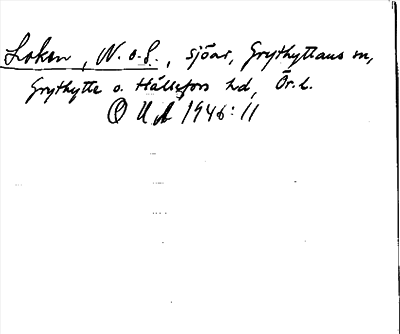 Loken, N. o. S., sjöar, Grythyttans sn,
Grythytte o. Hällefors hd, Ör. l.
O U A 1946: 11